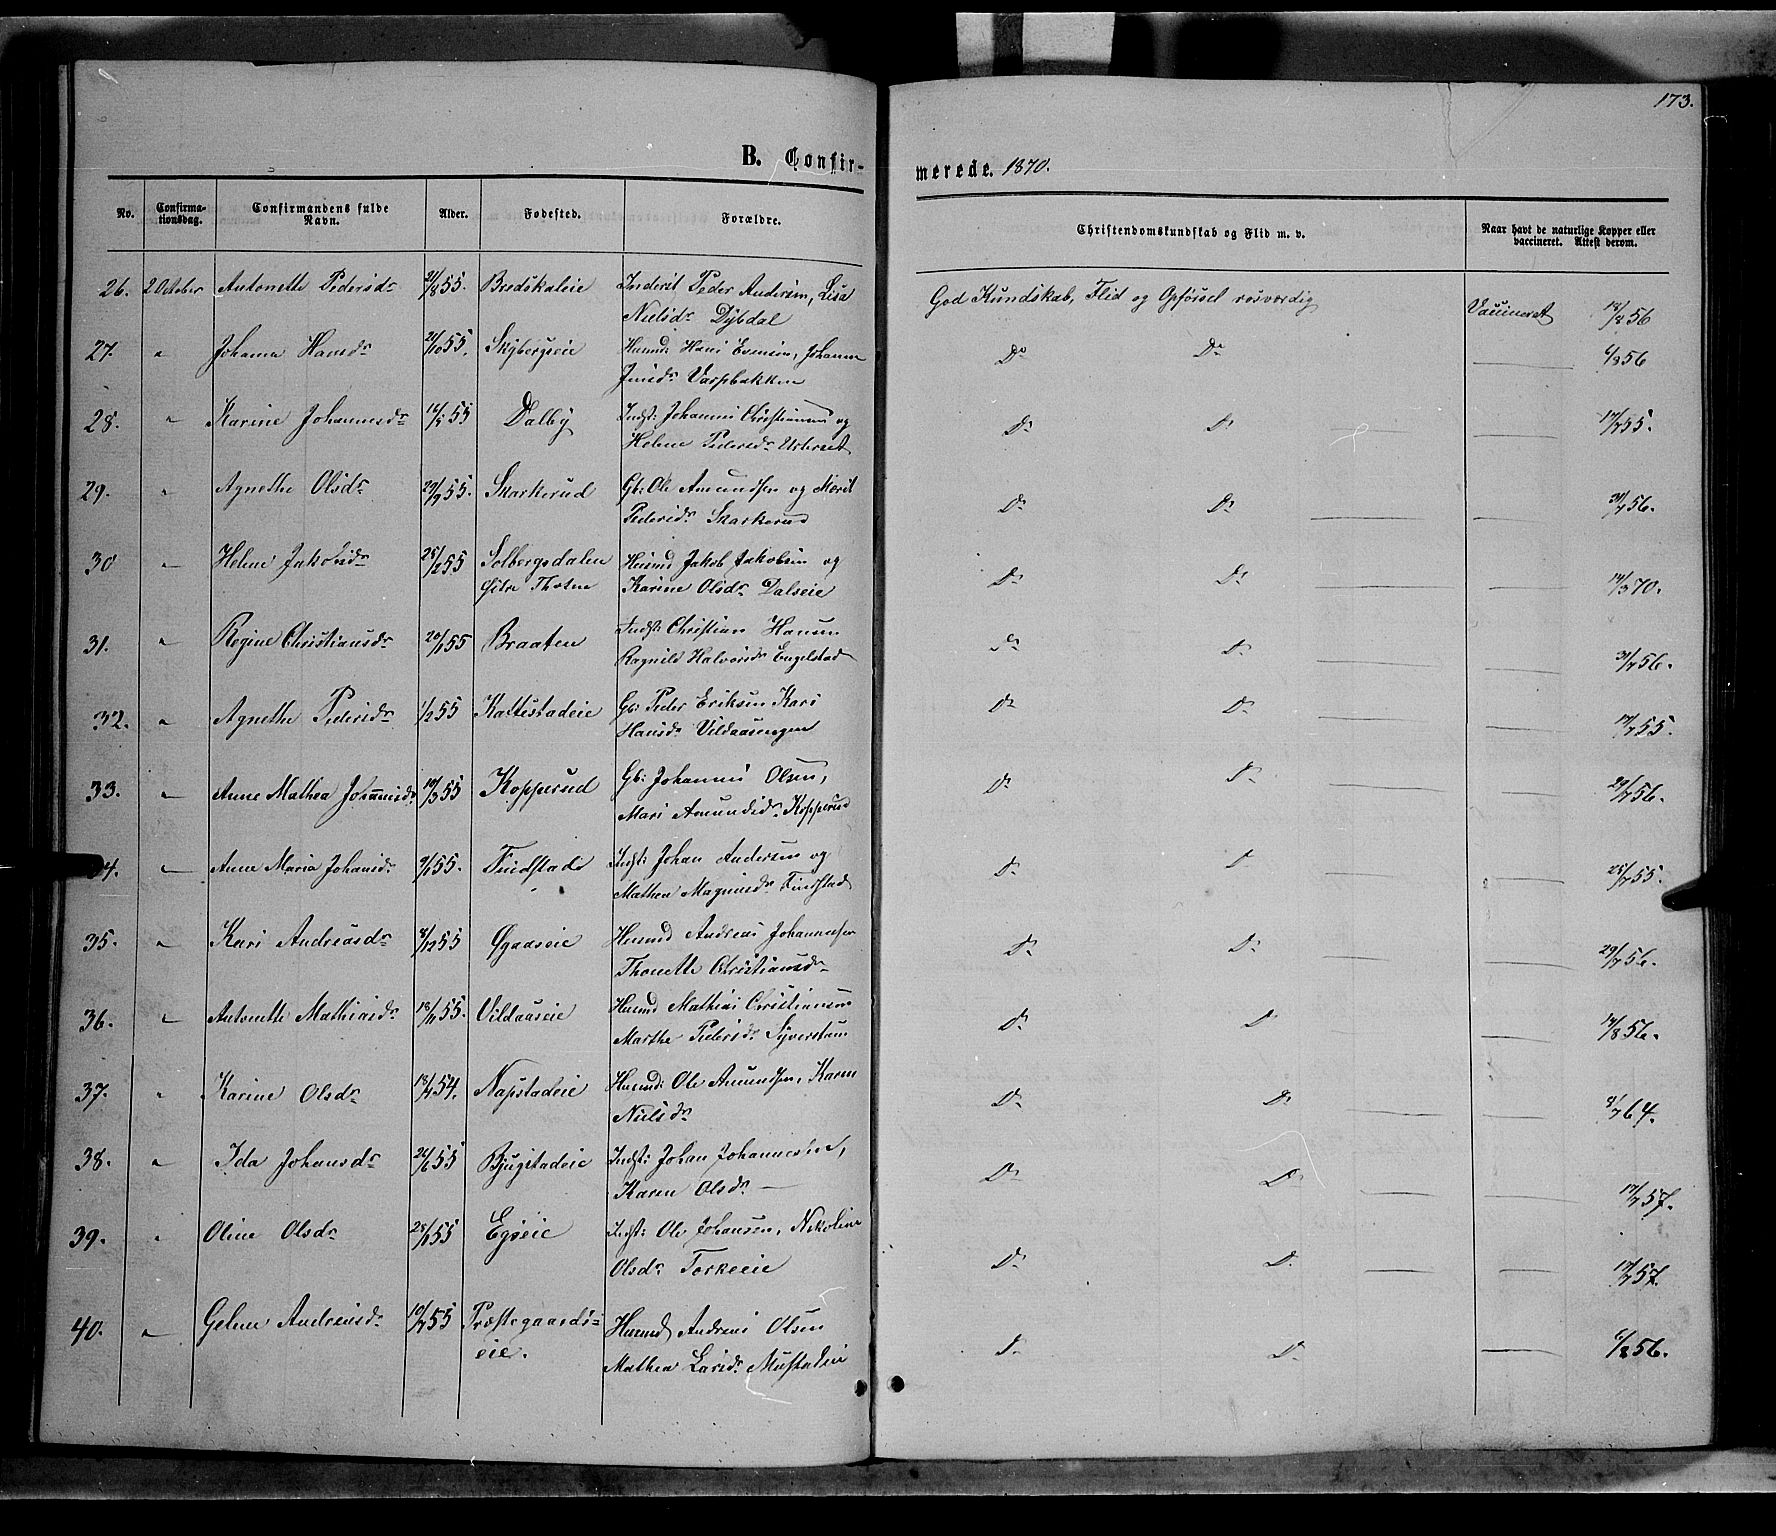 173.
B. Confir-
merede. 1870.
No.
Confirma-
tionsdag.
Confirmandens fulde
Navn.
Alder.
Fødested.
Forældre.
Christendomskundskab og Flid m. v.
Naar havt de naturlige Kopper eller
vaccineret. Attest derom.
26. 2 October Antonette Pedersdr 21/8 55. Bredskaleie Inderst Peder Andersen, Lisa
Nielsdr Dybdal God Kundskab, Flid og Opførsel rosværdig Vaccineret 18/8 56
27. " Johanne Hansdr 21/10 55. Skybergseie Husmd Hans Evensen, Johanne
Jensdr Varpbakken Do Do 6/8 56
28. " Karine Johannesdr 16/5 55 Dalby Indst: Johannes Christiansen og
Helene Pedersdr Do Do 17/7 55.
29. " Agnethe Olsdr 29/9 55. Skarkerud Gb: Ole Amundsen og Marit
Pedersdr Skarkerud Do Do 31/7 56.
30 " Helene Jakobsdr 25/2 55 Solbergsdalen
Østre Thoten Husmd Jakob Jakobsen og
Karine Olsdr Dalseie Do Do 14/3 70.
31. " Regine Christiansdr 20/1 55 Braaten Indst: Christian Hansen
Ragnild Halvorsdr Engelstad Do Do 31/7 56.
32. " Agnethe Pedersdr 1/2 55 Kattestadeie Gb: Peder Eriksen Kari
Hansdr Vildaasengen Do Do 17/7 55.
33. " Anne Mathea Johannesdr 19/3 55 Kopperud Gb: Johannes Olsen,
Mari Amundsdr Kopperud Do Do 29/7 56.
34. " Anne Maria Johansdr 9/1 55. Findstad Indst: Johan Andersen og
Mathea Magnusdr Findstad Do D 25/7 55.
35. " Kari Andreasdr 8/12 55 Øgaaseie Husmd Andreas Johannesen
Thonette Christiansdr Do Do 29/7 56.
36. " Antonette Mathiasdr 18/11 55. Vildaaseie Husmd Mathias Christiansen
Marthe Pedersdr Syverstuen Do D 14/8 56.
37. " Karine Olsdr 54. Napstadeie Husmd: Ole Amundsen, Karen
Nielsdr Do Do 64.
38. " Ida Johansdr 24/6 55 Bjugstadeie Indst: Johan Johannessen,
Karen Olsdr — Do Do 17/7 57.
39. " Oline Olsdr 28/1 55 Egseie Indst: Ole Johansen, Nikoline
Olsdr Torkeeie Do D. 17/7 57.
40. " Andreasdr 10/7 55 Præstegaards-
eie. Husmd Andreas Olsen
Mathea Larsdr Mustadeie Do Do 6/8 56.